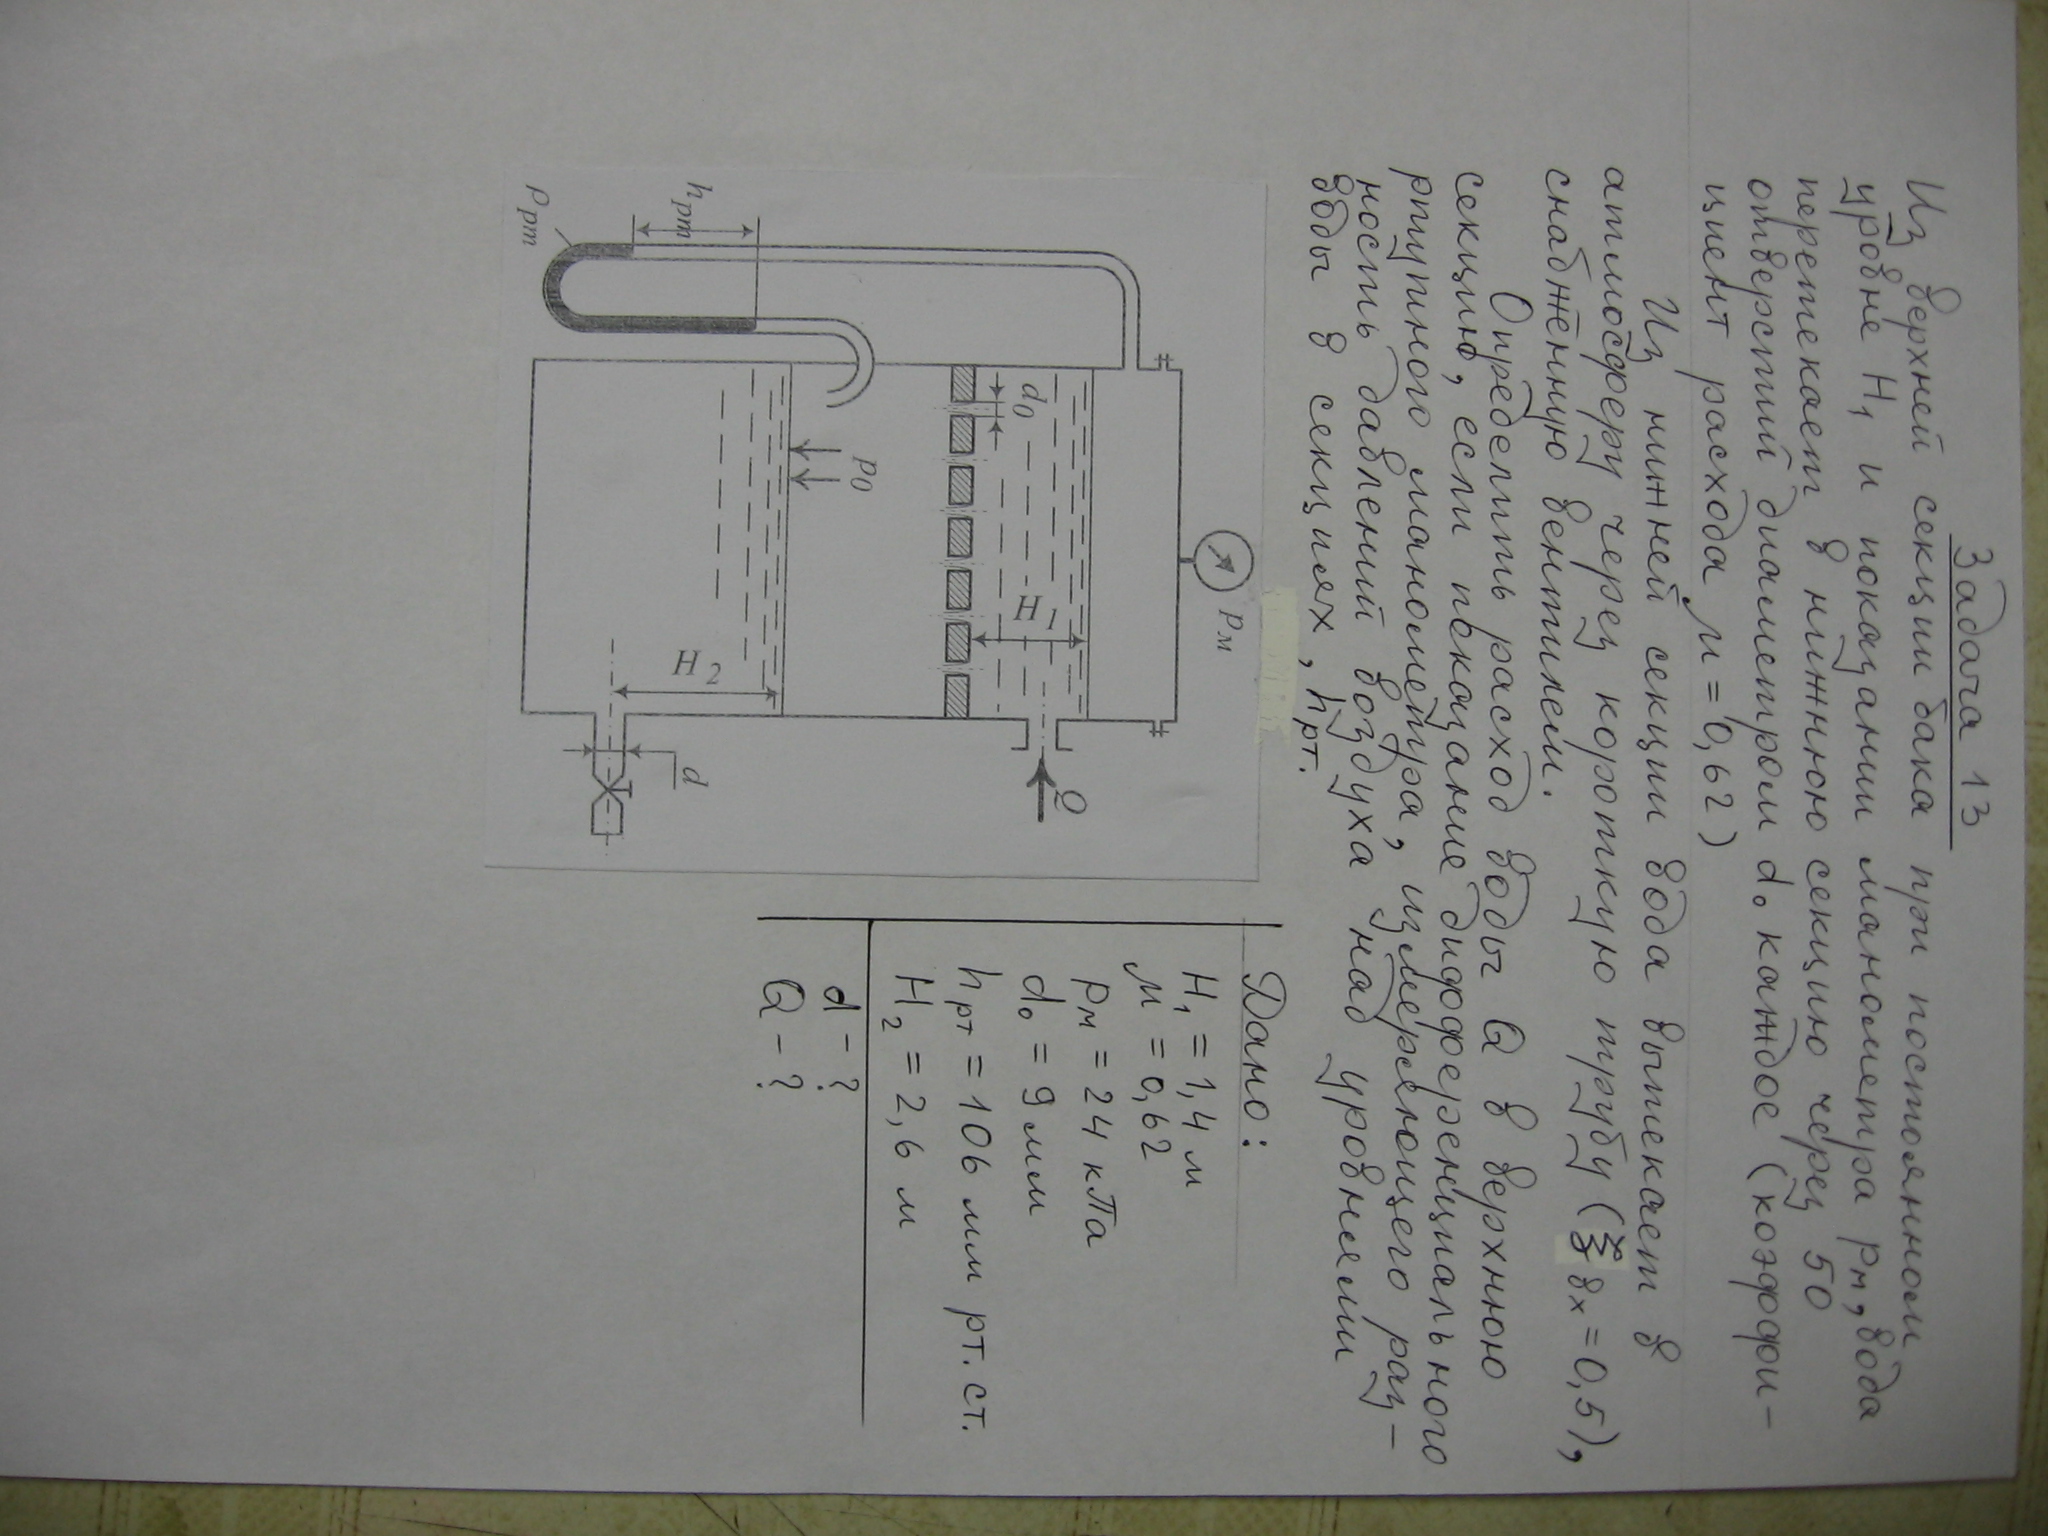 Задача 13
Из верхней секции бака при постоянном
уровне H₁ и показании манометра pм, вода
перетекает в нижнюю секцию через 50
отверстий диаметром d₀ каждое (коэффи-
циент расхода μ = 0,62)
Из нижней секции вода вытекает в
атмосферу через короткую трубу (ξ вх = 0,5),
снабжённую вентилем.
Определить расход воды Q в верхнюю
секцию, если показание дифференциального
ртутного манометра, измеряющего раз-
ность давлений воздуха над уровнями
воды в секциях, hрт.
pм
Q
H₁
d₀
p₀
H₂
d
hрт
ρрт
Дано:
H₁ = 1,4 м
μ = 0,62
pм = 24 кПа
d₀ = 9 мм
hрт = 106 мм рт. ст.
H₂ = 2,6 м
d - ?
Q - ?